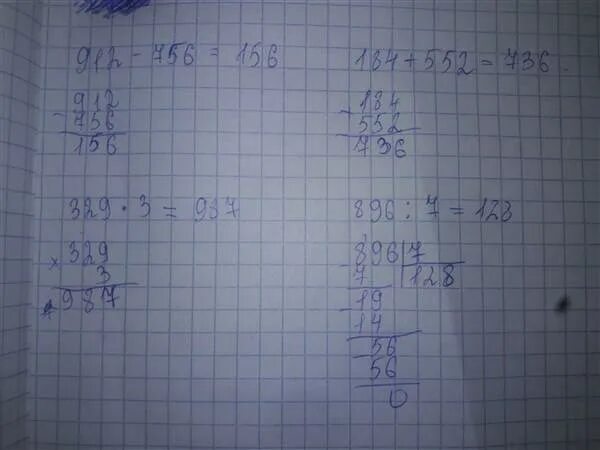 912 - 756 = 156
184 + 552 = 736
912
- 756
156
184
- 552
736
329 · 3 = 987
896 : 7 = 128
329
× 3
987
896 | 7
- 7 | 128
19
- 14
56
56
0